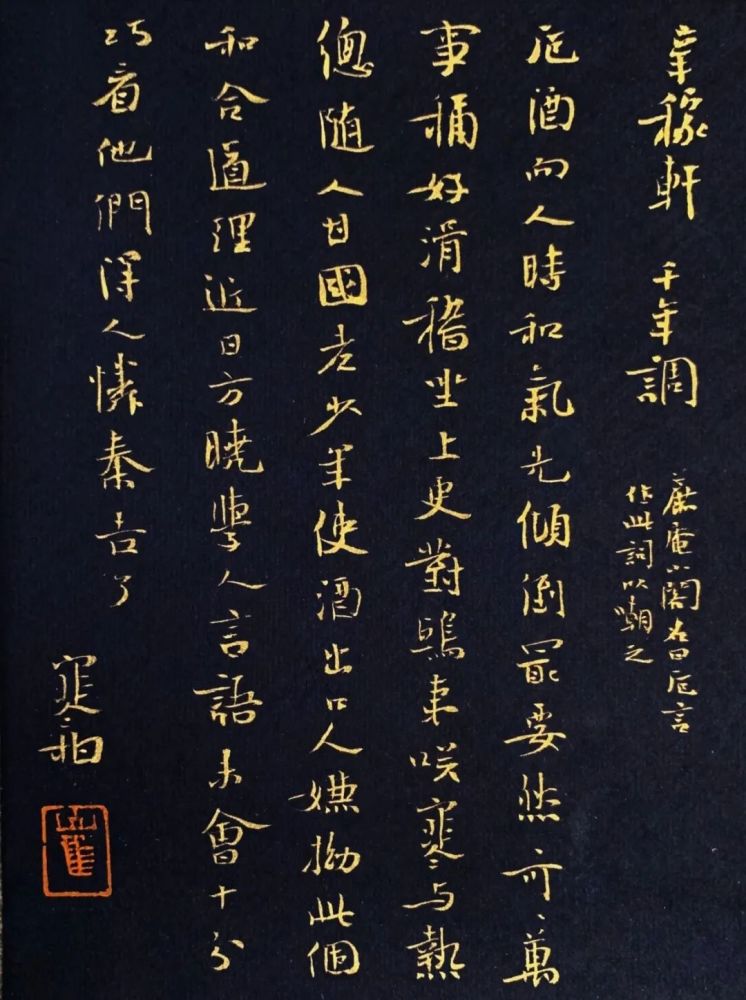 辛稼軒 千年調
蔗庵小閣名曰卮言
作此詞以嘲之
卮酒向人時和氣先傾倒冣要然〻可〻萬
事稱好滑稽坐上更對鴟夷咲寒与熱
總随人甘國老少年使酒出口人嫌拗此個
和合道理近日方曉學人言語未會十分
巧看他們得人憐秦吉了
寒柏
崔